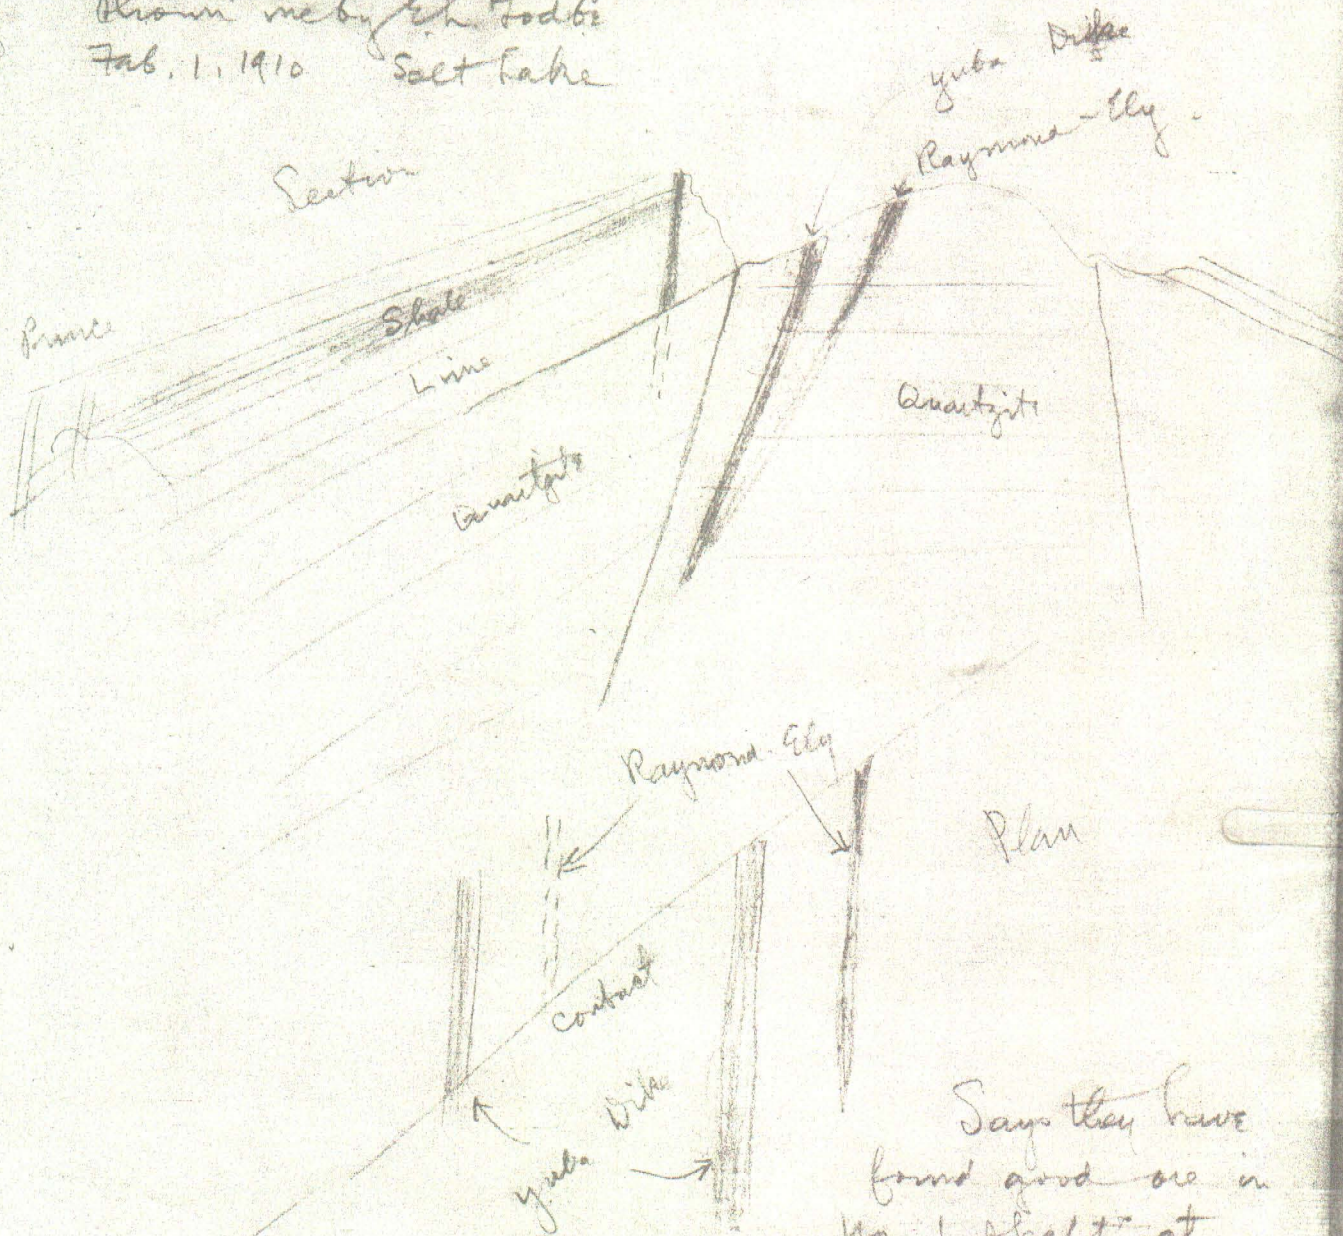 shown me by
Feb. 1, 1910 Salt Lake
Yuba Dike
Raymond-Ely.
Section
Prince
Shale
Lime
Quartzite
Quartzite
Raymond-Ely
Plan
contact
Yuba Dike
Says they have
found good ore in
No. 1 shaft at